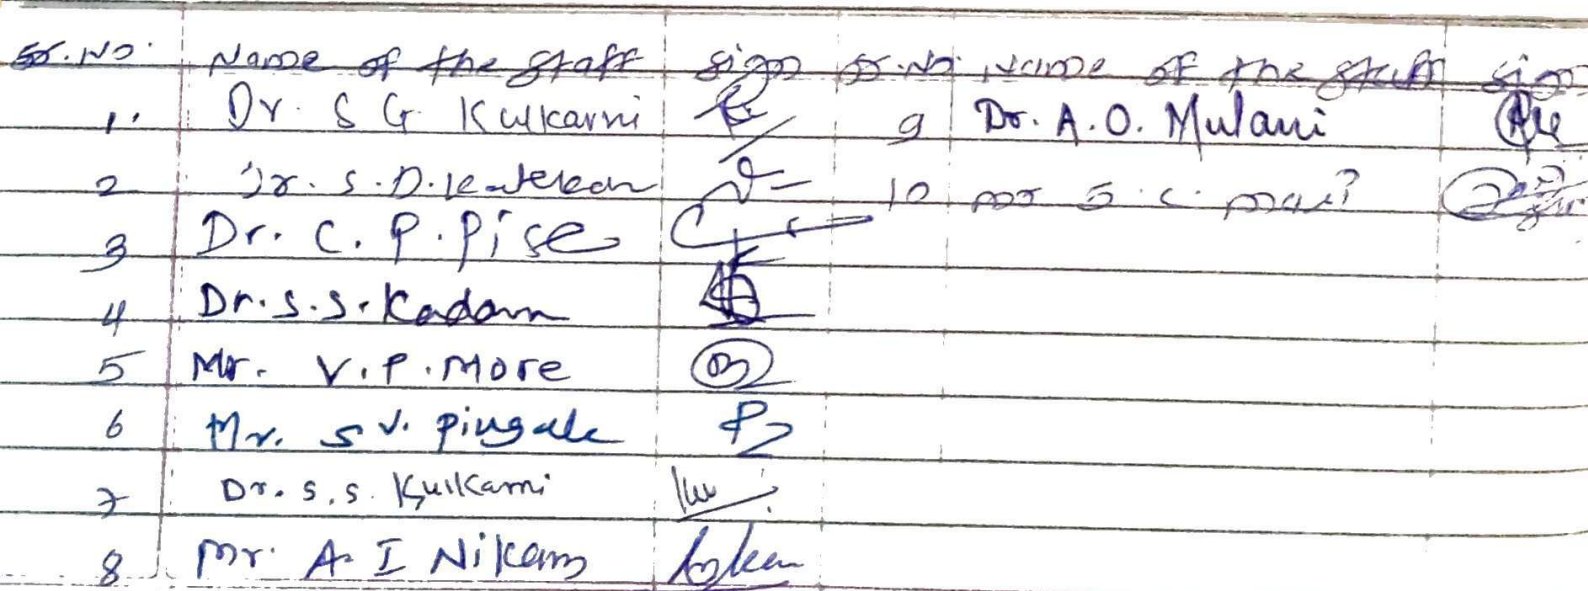 Sr.No. Name of the staff sign Sr.No. Name of the staff sign
1. Dr. S G Kulkarni 9 Dr. A.O. Mulani
2 Dr. S.D. Katekar 10 Mr S.C.
3 Dr. C. P. Pise
4 Dr. S.S. Kadam
5 Mr. V.P. More
6 Mr. S V. Pingale
7 Dr. S.S. Kulkarni
8 Mr. A I Nikam